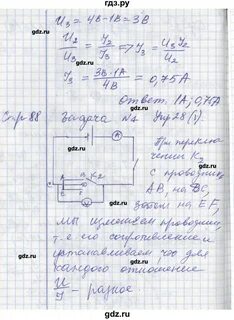 gdz.ru
U₃ = 4В - 1В = 3В
U₂/U₃ = I₂/I₃ => I₃ = U₃I₂/U₂
I₃ = 3В·1А/4В = 0,75А
Ответ: 1А; 0,75А
Стр 88 Задача №1 Упр 28(1).
A
K-2
При переключении K₂
с проводника
AB, на BC,
затем на EF,
мы изменяем проводник,
т.е его сопротивление и
устанавливаем что для
каждого отношение
U/I - разное